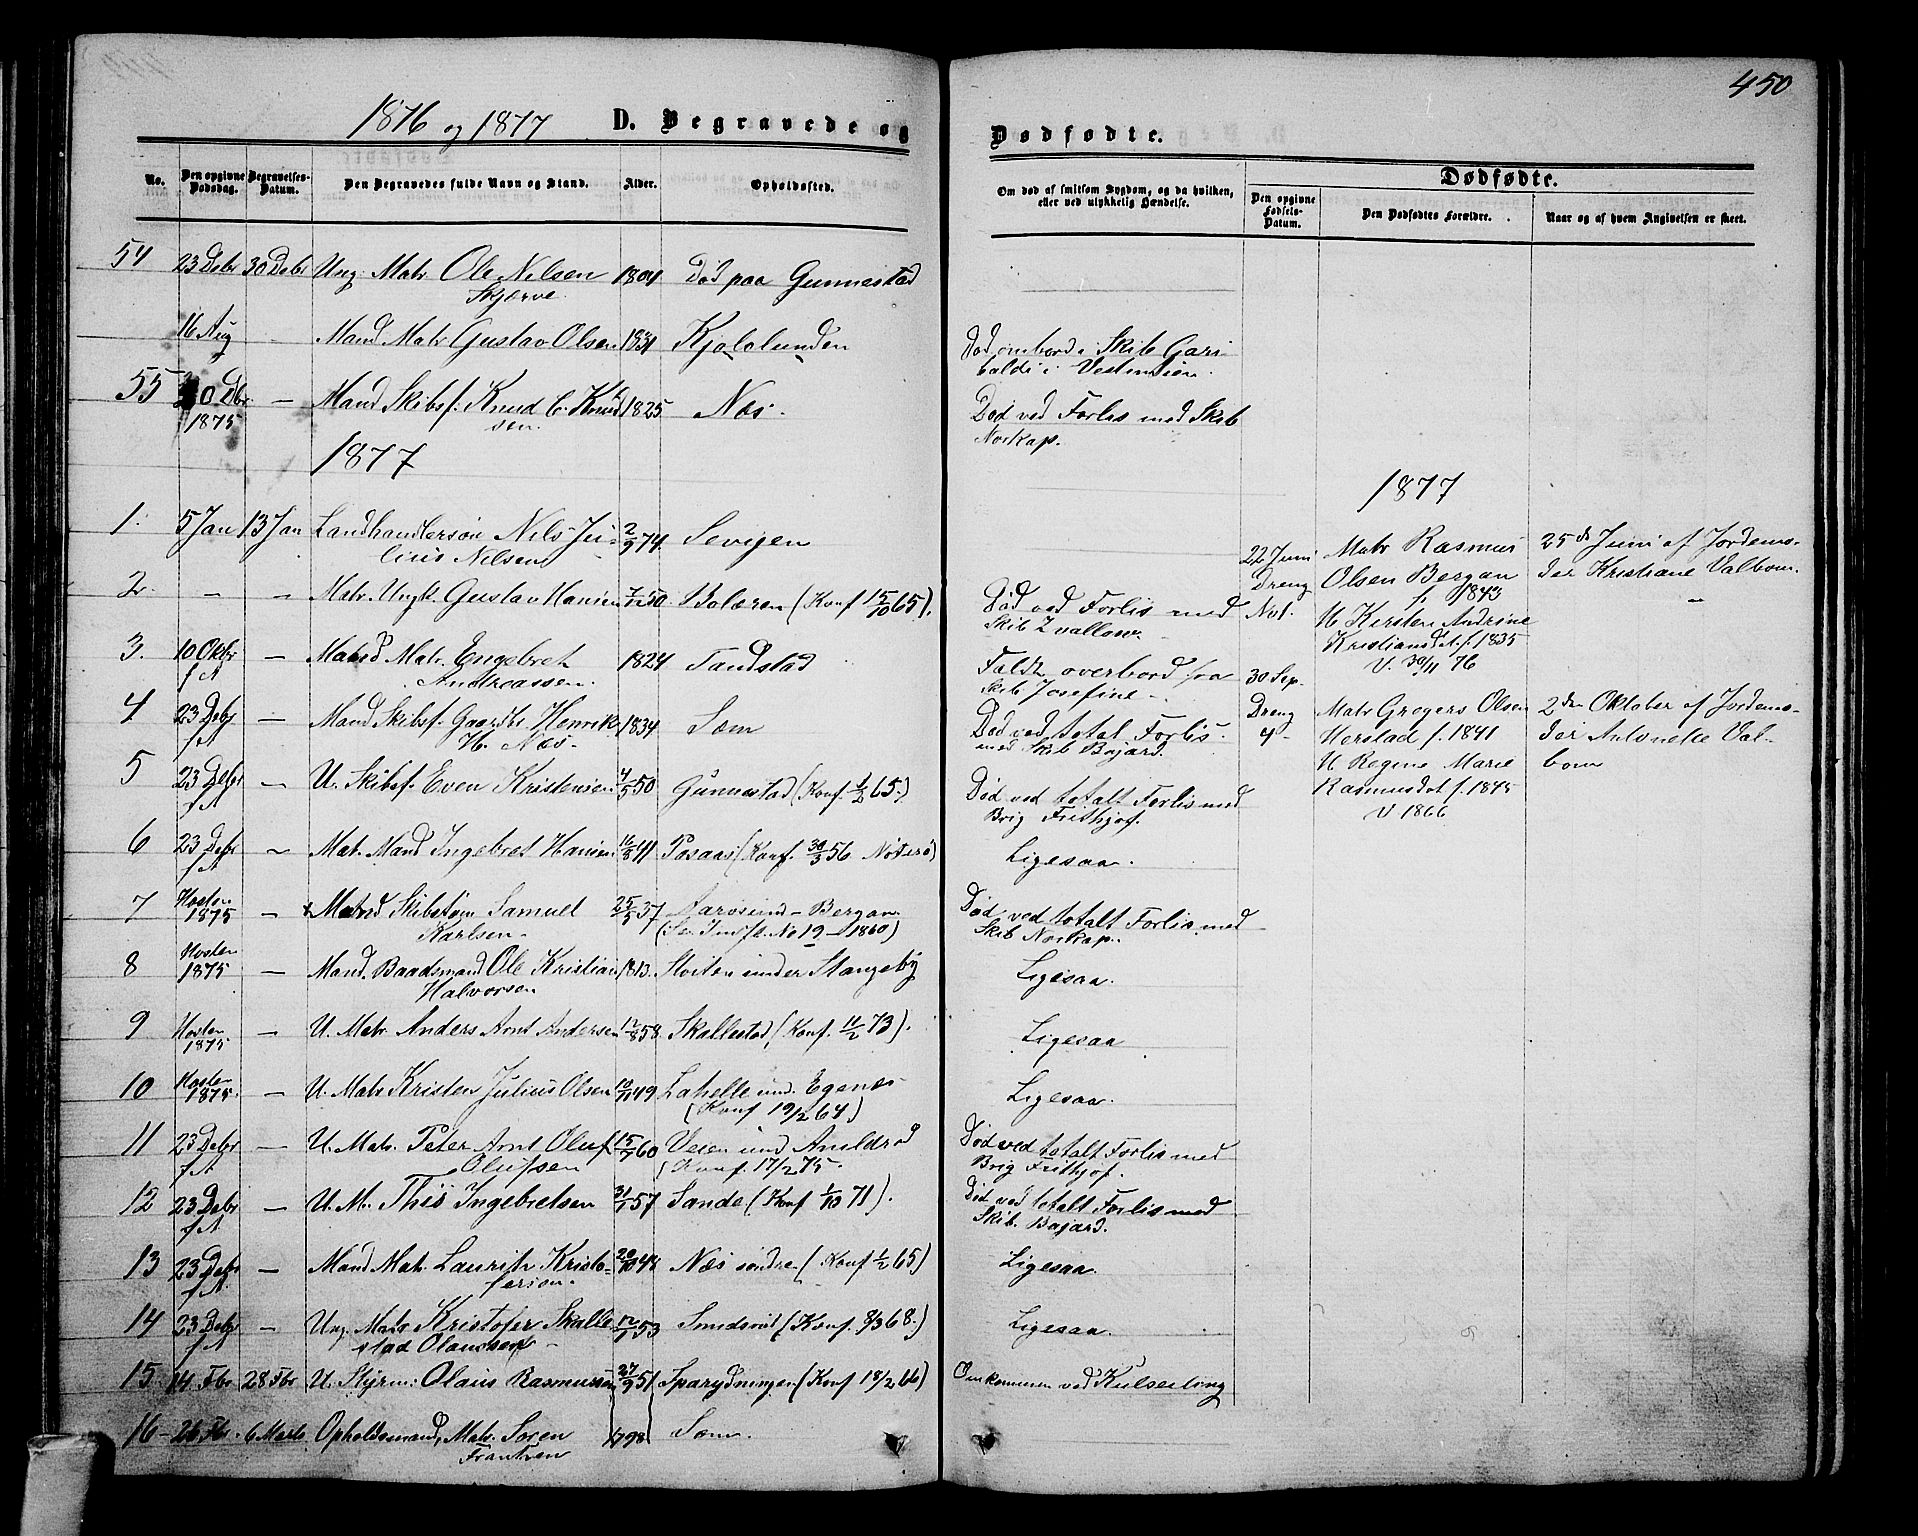 450
1876 og 1877 D. Begravede og Dødfødte.
No. Den opgivne Dødsdag. Begravelses-Datum. Den Begravedes fulde Navn og Stand. Alder. Opholdssted.
Om død af smitsom Sygdom, og da hvilken, eller ved ulykkelig Hændelse. Dødfødte.
Den opgivne Fødsels-Datum. Den Dødfødtes Forældre. Naar og af hvem Angivelsen er skeet.
54 23 Debr 30 Debr Ung. Matr Ole Nilsen 1804 Død paa Gunnestad
Skjærve.
16 Aug Mand Matr Gustav Olsen 1831 Kjølolunden Død ombord i Skib Gari-
baldi i Vestindien.
55 Dbr — Mand Skibsf. Knud C. Knud 1825 Næs. Død ved Forlis med Skib
1875 sen. Norkap.
1877
1. 5 Jan 13 Jan Landhandlersøn Nils Ju- 2/9 74. Sevigen
lius Nilsen
2. - - Matr. Ungk. Gustav Hansen 7/12 50 Bolæren (Konf 15/10 65). Død ved Forlis med
Skib Zvallow.
3. 10 Oktbr — Mand Matr. Engebret 1824 Sandstad Faldt overbord fra
f A Andreassen. Skib Josefine -
4 23 Debr — Mand Skibsf. Gaardbr Henrik 1834 Sæm Død ved total Forlis
f A H. Næs. med Skib Bajard.
5 23 Debr — U. Skibsf. Even Kristensen 4/5 50 Gunnestad (Konf. 1/2 65.) Død ved totalt Forlis med
f A Brig Frithjof.
6 23 Debr ~ Mat. Mand Ingebret Hansen 16/8 41 Posaas (Konf. 30/3 56 Nøterø) Ligesaa.
f A
7 Høsten — Matr Skibstøm Samuel 25/5 37 Aarøsund - Bergan Død ved totalt Forlis med
1875 Karlsen. (Se Indfl. No 19 - 1860) Skib Norkap.
8 Høsten — Mand. Baadsmand Ole Kristian 1813. Hviten under Stangeby Ligesaa.
1875 Halvorsen
9 Høsten — U. Matr Anders Arnt Andersen 12/8 58. Skallestad, (Konf. 11/2 73). Ligesaa
1875
10 Høsten — U. Matr Kristen Julius Olsen 10/11 49 Lahelle und. Egenes Ligesaa.
1875. (Konf 19/2 64)
11 23 Debr — U. Matr. Peter Arnt Oluf 15/7 60 Veien und Arildrød Død ved totalt Forlis med
f A Olufsen (Konf. 17/2 75. Brig Frithjof.
12 23 Debr — U. M. This Ingebretsen 31/1 57 Sande (Konf 1/10 71). Død ved totalt Forlis med
f A Skib. Bajard.
13 23 Debr — Mand Matr. Laurits Kristo- 20/10 48 Næs søndre (Konf 1/2 65) Ligesaa.
f A fersøn.
14 23 Debr — Ung. Matr Kristofer Skalle 12/1 53 Smidsrød (Konf. 8/3 68.) Ligesaa.
f A stad Olaussen
15. 14 Fbr 28 Fbr U. Styrm: Olaus Rasmussen 27/9 51 Sparydningen (Konf 18/2 66) Omkommen ved Kulseiling
16 - 26 Fbr. 6 Marts Opholdsmand, Matr. Soren 1798 Sæm.
Frantzen
1877
22 Juni Matr Rasmus 25de Juni af Jordemo-
Dreng Olsen Bergan der Kristiane Valbom.
f. 1843
No 1. H Kirsten Andrine
Kristiansdt. f. 1835
V. 30/11 76
30 Sep.
Dreng Matr Gregers Olsen 2den Oktober af Jordemo-
Herstad f. 1841 der Antonette Val-
H Regine Marie bom
Rasmusdat f. 1845
V 1866